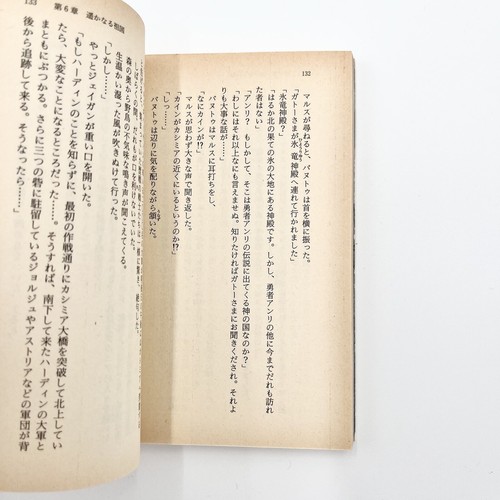 132
マルスが尋ねると、バヌトゥは首を横に振った。
「ガトーさまが氷竜神殿へ連れて行かれました」
「氷竜神殿?」
「はるか北の果ての氷の大地にある神殿です。しかし、勇者アンリの他に今までだれも訪れ
た者はない」
「アンリ? もしかして、そこは勇者アンリの伝説に出てくる神の国なのか?」
「わしにはそれ以上なにも言えませぬ。知りたければガトーさまにお聞きくだされ。それよ
りも大事な話が……」
バヌトゥはマルスに耳打ちをし、
「なにカインが!?」
マルスが思わず大きな声で聞き返した。
「カインがカシミアの近くにいるというのか!?」
「しっ……」
バヌトゥは辺りに気を配りながら頷いた。
133 第6章 遥かなる祖国
しばらくの間、だれもが口を利かないでいた。
森の奥から野鳥の不気味な鳴き声が聞こえてくる。
生温かい湿った風が吹きぬけて行った。
「しかし……」
やっとジェイガンが重い口を開いた。
「もしハーディンのことを知らずに、最初の作戦通りにカシミア大橋を突破して北上してい
たら、大変なことになるところだった……。そうすれば、南下して来たハーディンの大軍と
まともにぶつかる。さらに三つの砦に駐留しているジョルジュやアストリアなどの軍団が背
後から追跡して来る。そうなったら……」